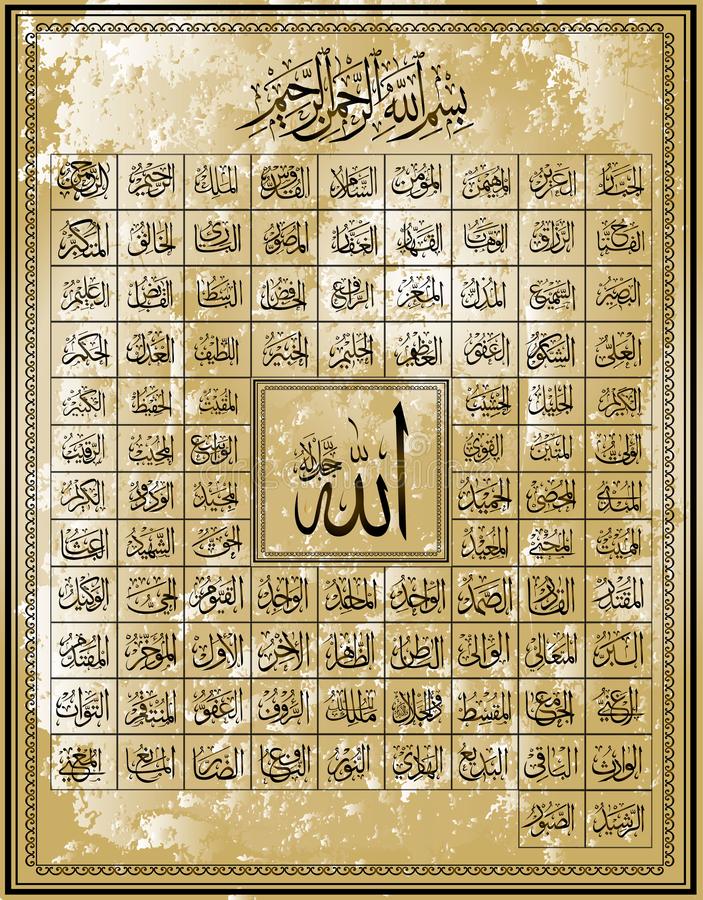 بِسْمِ اللهِ الرَّحْمٰنِ الرَّحِيْمِ
الجبار العزيز المهيمن المؤمن السلام القدوس الملك الرحيم الرحمن
الفتاح الرزاق الوهاب القهار الغفار المصور البارئ الخالق المتكبر
البصير السميع المذل المعز الرافع الخافض الباسط القابض العليم
العلي الشكور الغفور العظيم الحليم الخبير اللطيف العدل الحكم
الكريم الجليل الحسيب المقيت الحفيظ الكبير
الولي المتين القوي الواسع المجيب الرقيب
الله جل جلاله
المبدئ المحصي الحميد المجيد الودود الحكيم
المميت المحيي المعيد الحق الشهيد الباعث
المقتدر القادر الصمد الواحد الماجد الواجد القيوم الحي الوكيل
البر المتعالي الوالي الباطن الظاهر الآخر الأول المؤخر المقدم
الغني الجامع المقسط ذو الجلال مالك الملك الرؤوف العفو المنتقم التواب
الوارث الباقي البديع الهادي النور النافع الضار المانع المغني
الرشيد الصبور